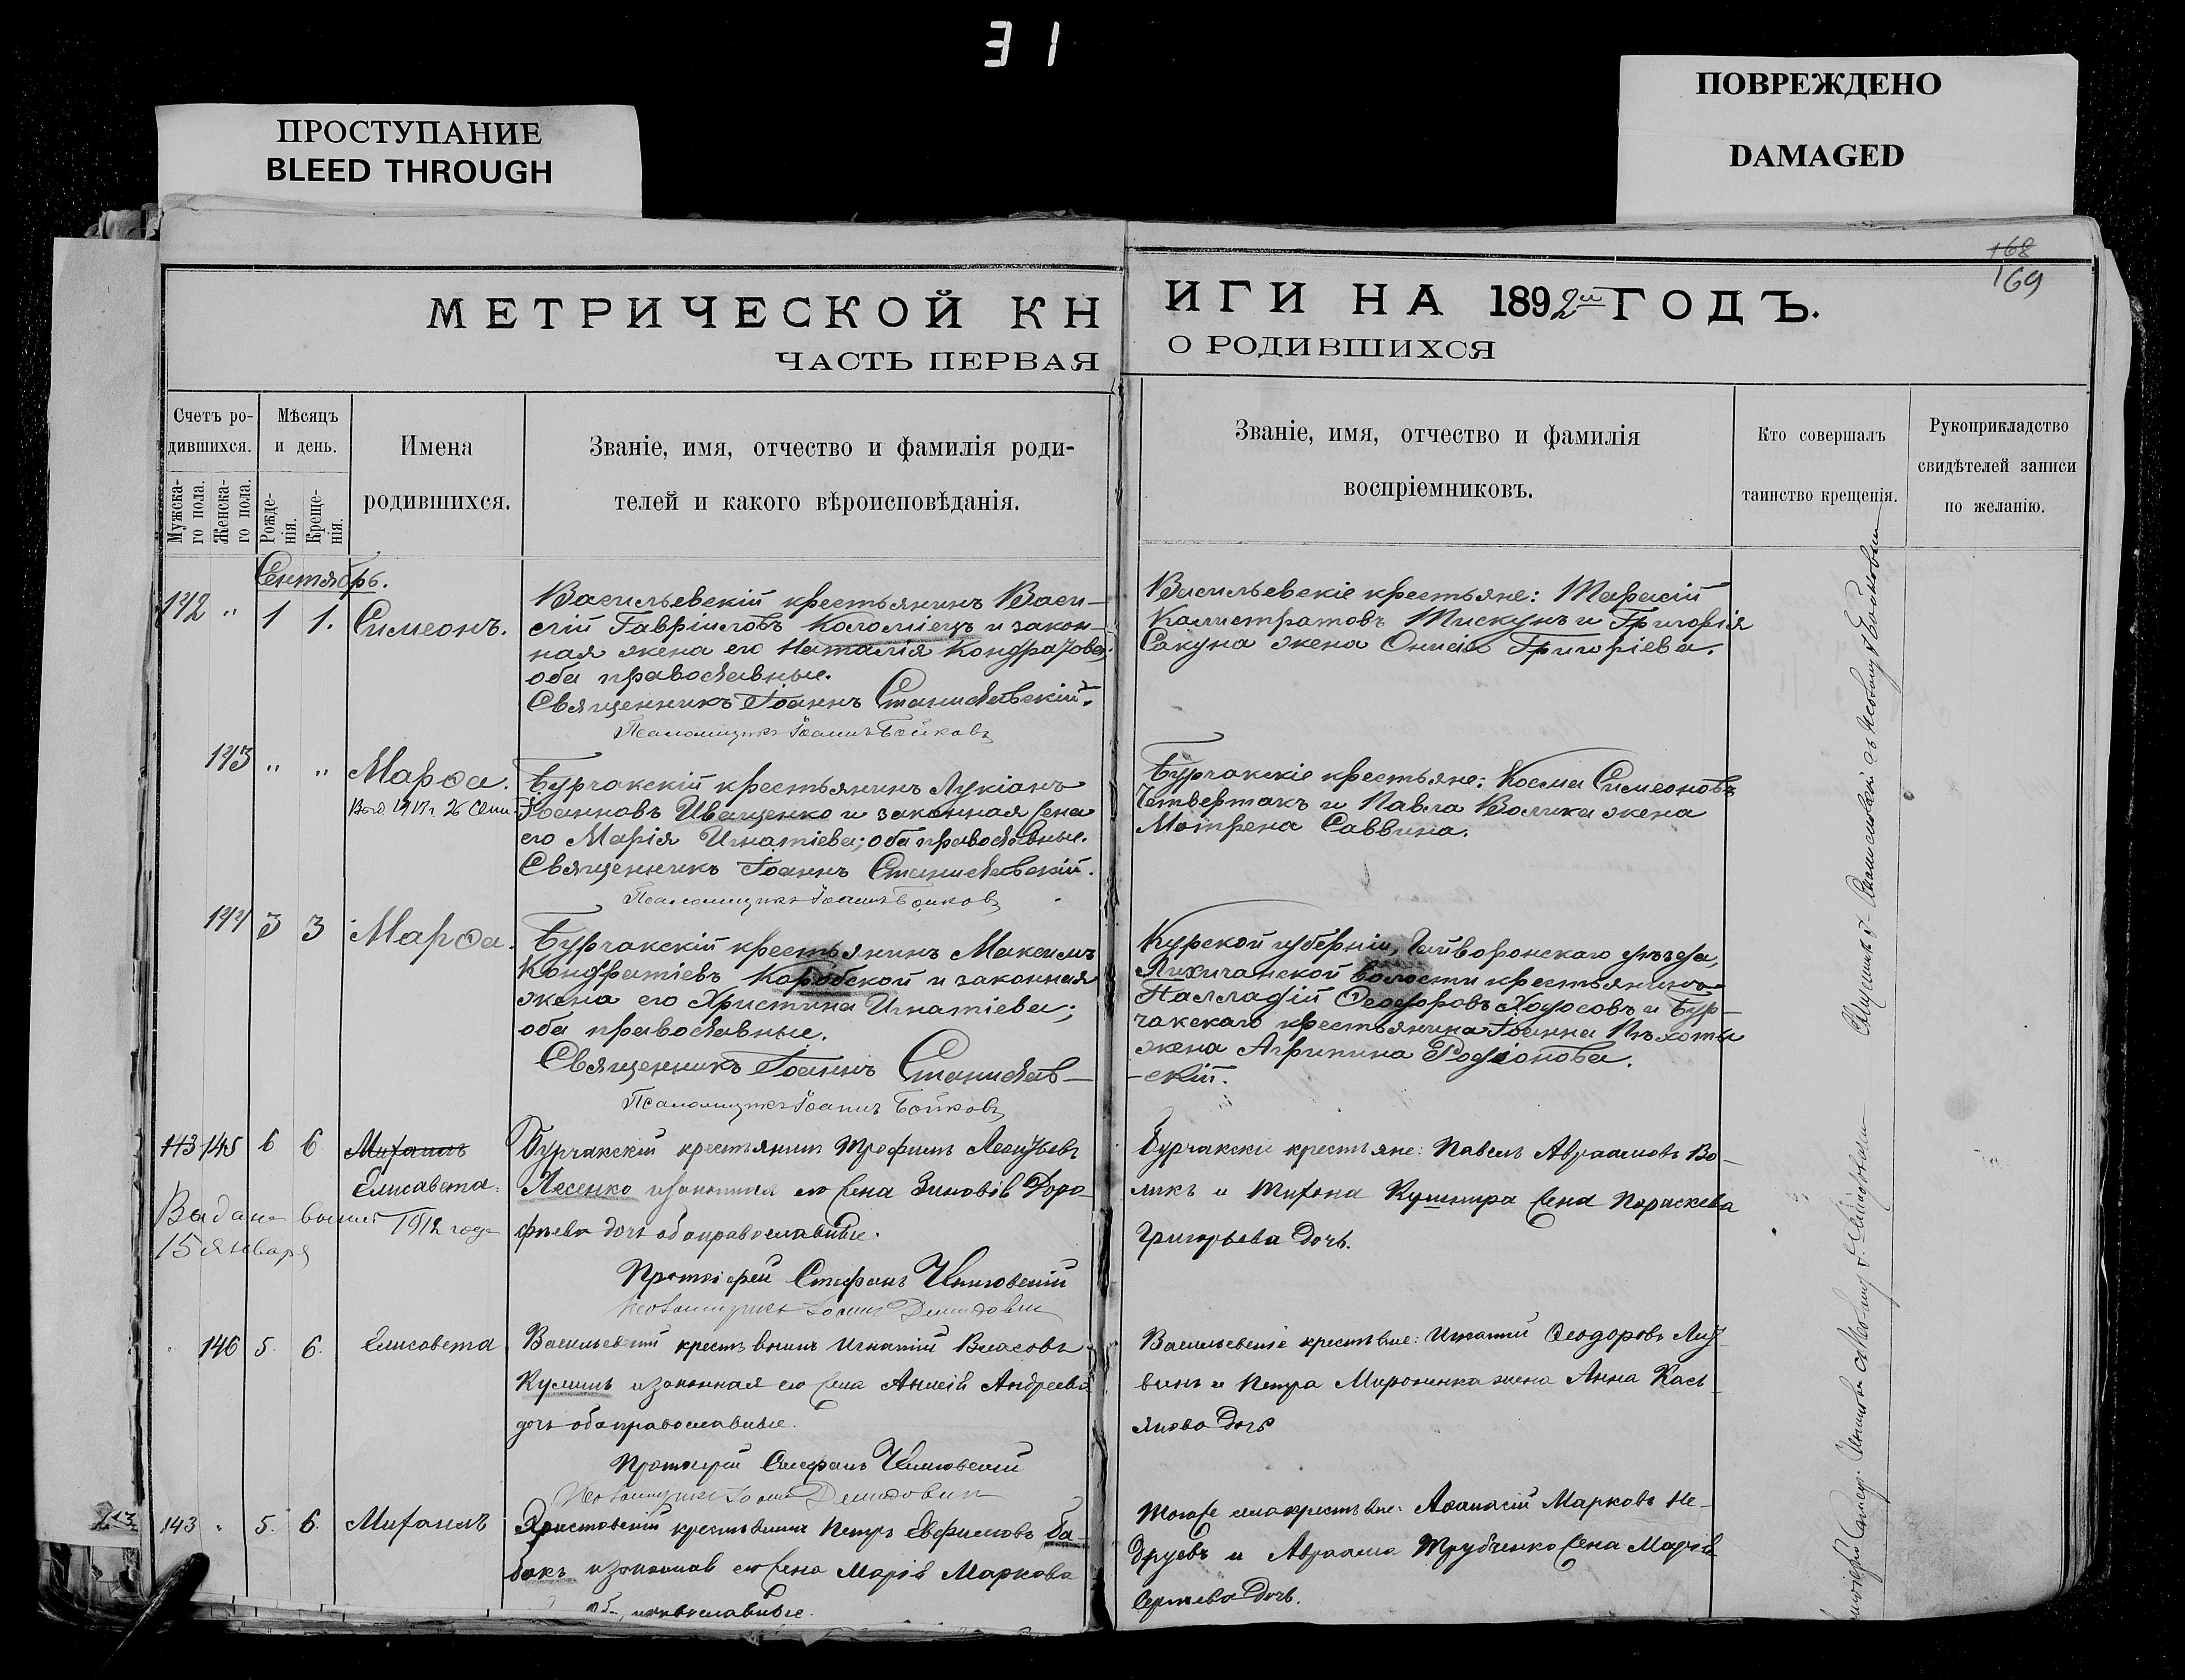 31
ПРОСТУПАНИЕ
BLEED THROUGH
ПОВРЕЖДЕНО
DAMAGED
168
169
МЕТРИЧЕСКОЙ КН
ИГИ НА 1892й ГОДЪ.
ЧАСТЬ ПЕРВАЯ
О РОДИВШИХСЯ
Счетъ ро-
дившихся.
Мужска-
го пола.
Женска-
го пола.
Мѣсяцъ
и день.
Рожде-
нія.
Креще-
нія.
Имена
родившихся.
Званіе, имя, отчество и фамилія роди-
телей и какого вѣроисповѣданія.
Званіе, имя, отчество и фамилія
воспріемниковъ.
Кто совершалъ
таинство крещенія.
Рукоприкладство
свидѣтелей записи
по желанію.
Сентябрь.
142 " 1 1. Симеонъ.
Васильевскій крестьянинъ Васи-
лій Гавріиловъ Коломіецъ и закон-
ная жена его Наталія Кондратова;
оба православные.
Священникъ Іоаннъ Станиславскій.
Псаломщикъ Іоаннъ Бойковъ
Васильевскіе крестьяне: Тарасій
Калистратовъ Пискунъ и Григорія
Сакуна жена Онисія Григоріева.
143 " " Марѳа.
Бурчакскій крестьянинъ Лукіанъ
Іоанновъ Иващенко и законная жена
его Марія Игнатіева; оба православные.
Священникъ Іоаннъ Станиславскій.
Псаломщикъ Іоаннъ Бойковъ
Бурчакскіе крестьяне: Косма Симеоновъ
Четвертакъ и Павла Волика жена
Мотрена Саввина.
144 3 3 Марѳа.
Бурчакскій крестьянинъ Максимъ
Кондратіевъ Коробской и законная
жена его Христина Игнатіева;
оба православные.
Священникъ Іоаннъ Станислав-
-скій.
Псаломщикъ Іоаннъ Бойковъ
Курской губерніи, Гайворонскаго уѣзда,
волости крестьянинъ
Палладій Ѳеодоровъ Ходосовъ и Бур-
чакскаго крестьянина Іоанна Пѣхоты
жена Агрипина Родіонова.
143 145 6 6 Михаилъ
Елисавета.
Выдана 1912 года
15 января
Бурчакскій крестьянинъ Трофимъ
Лясенко и законная его жена Зиновія Доро-
ѳеева дочь оба православные.
Протоіерей Стефанъ
Псаломщикъ Іоаннъ Демидовичъ
Бурчакскіе крестьяне: Павелъ Авраамовъ Во-
ликъ и Тихона жена Параскева
Григорьева дочь.
146 5. 6. Елисавета
Васильевскій крестьянинъ Игнатій Власовъ
и законная его жена Анисія Андреева
дочь оба православные.
Протоіерей Стефанъ
Псаломщикъ Іоаннъ Демидовичъ
Васильевскіе крестьяне: Игнатій Ѳеодоровъ
и Петра Мироненка жена Анна Кась-
янова дочь
143 " 5. 6. Михаилъ
крестьянинъ Петръ Евфимовъ Ба-
бакъ и законная его жена Марія Маркова
оба православные.
Того же села крестьяне: Аѳанасій Марковъ Не-
друевъ и Авраама Трубченко жена Марія
Сергеева дочь.